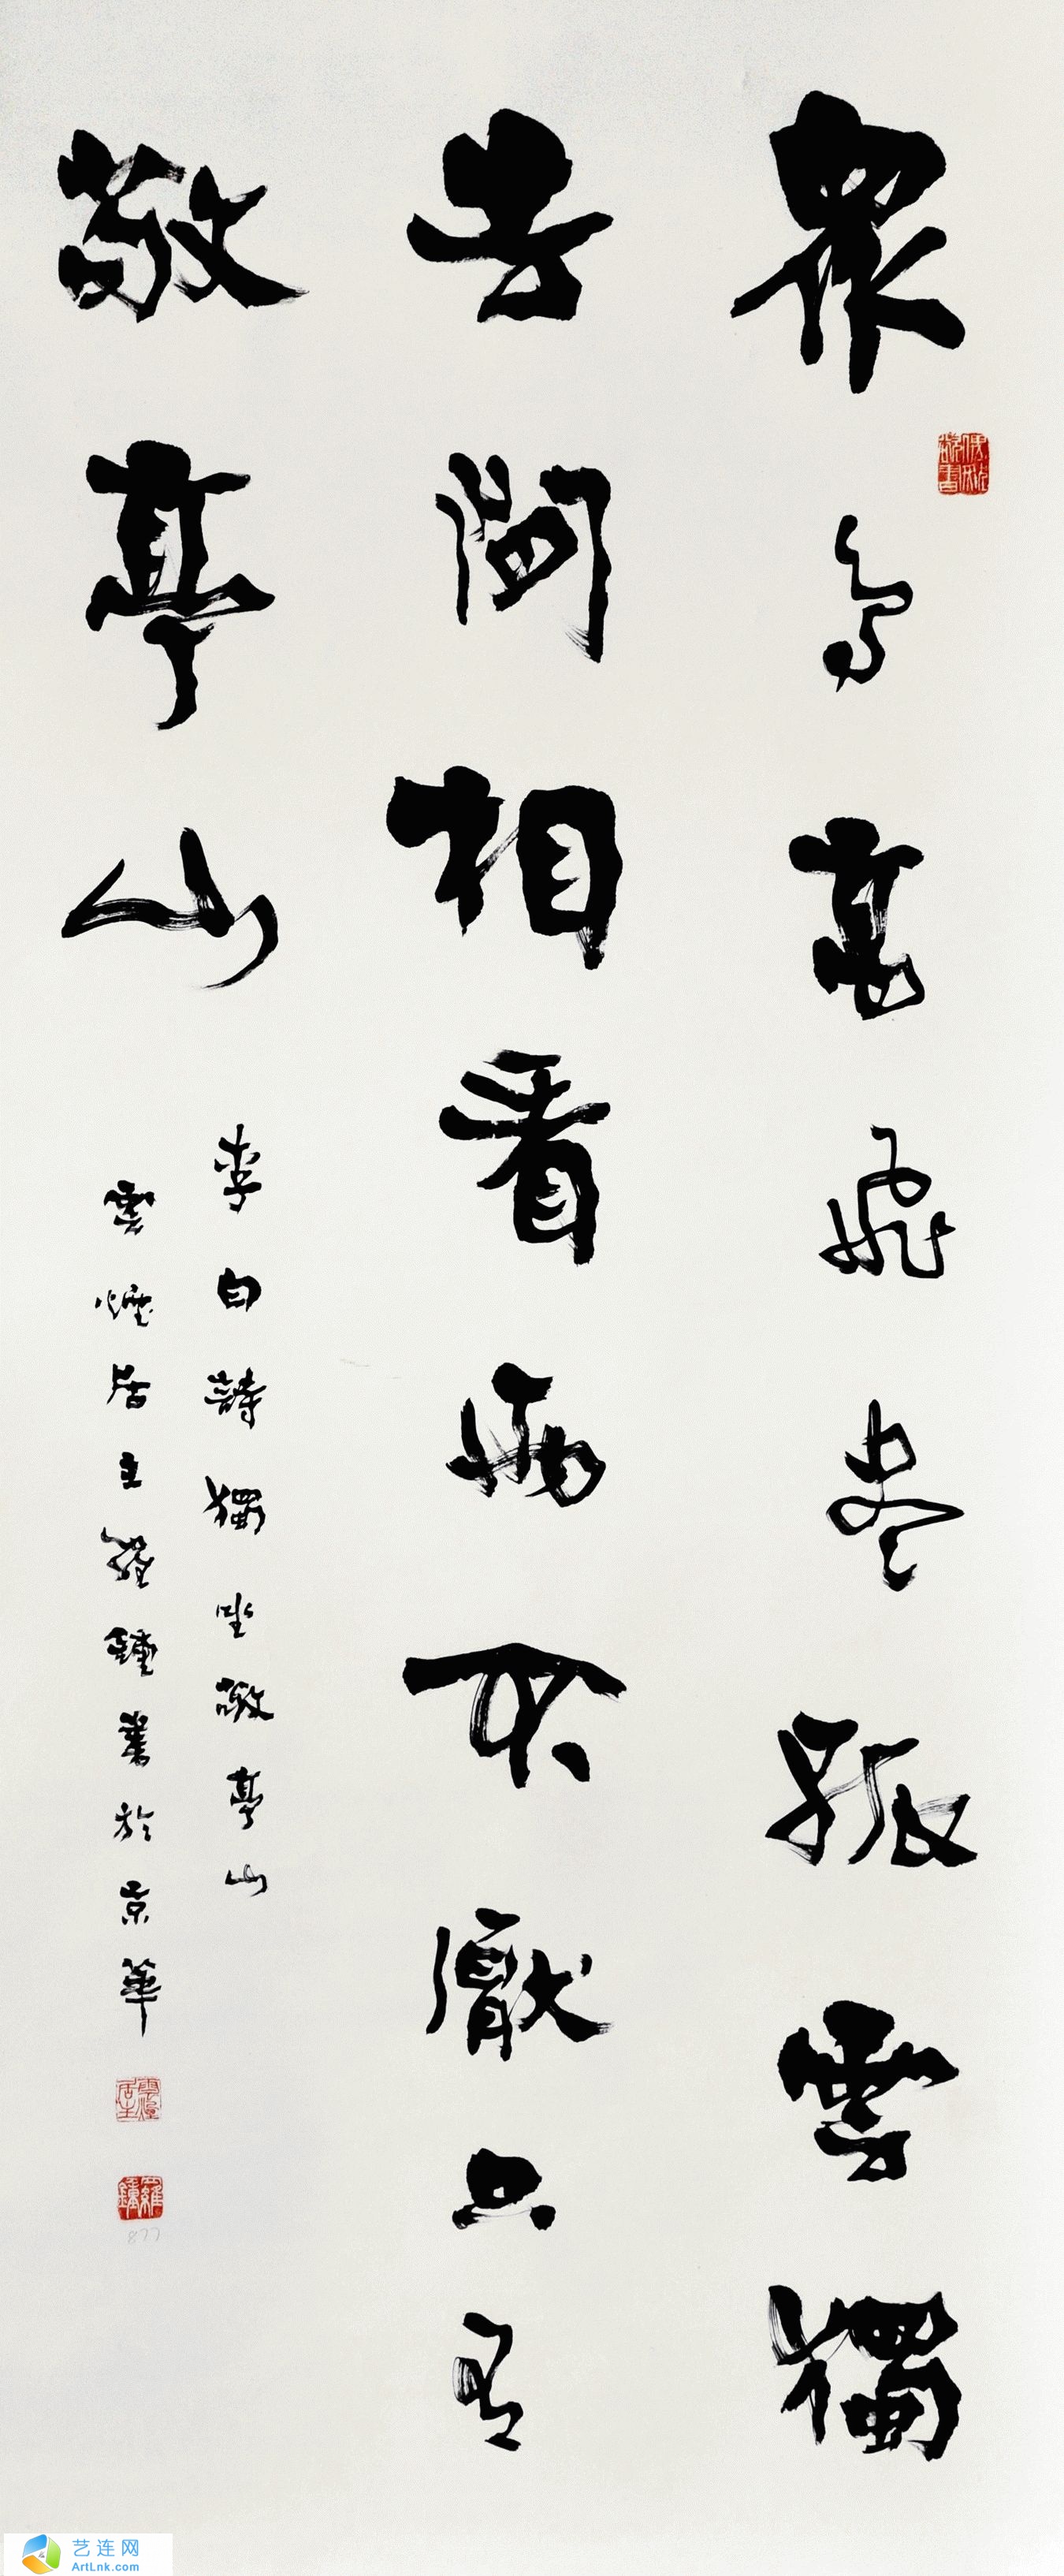 眾鳥高飛盡孤雲獨
去閒相看兩不厭只有
敬亭山
李白詩獨坐敬亭山
雲煙居主羅鍾書於京華
雲煙居主
羅鍾
877
艺连网
ArtLnk.com